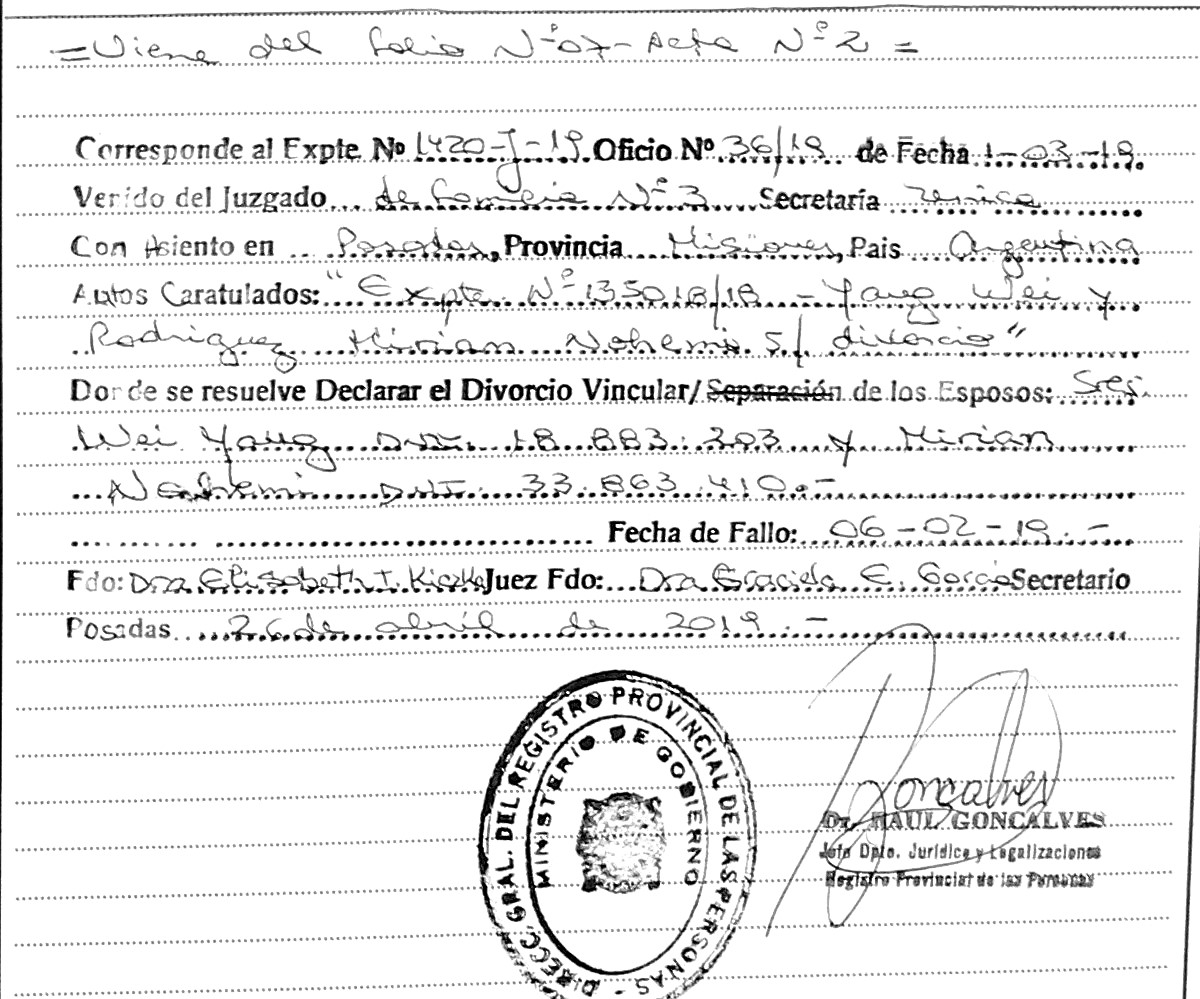 = Viene del folio Nº 07 - Acta Nº 2 =
Corresponde al Expte Nº 1420-J-19. Oficio Nº 36/19 de Fecha 1-03-19.
Venido del Juzgado... de Familia Nº 3 ...Secretaría ...Unica
Con Asiento en ... Posadas, Provincia Misiones, Pais ... Argentina
Autos Caratulados: "Expte. Nº 135018/18 - Yang Wei y
Rodriguez Mirian Nohemi s/ divorcio"
Donde se resuelve Declarar el Divorcio Vincular/Separación de los Esposos: Sres.
Wei Yang DNI. 18.883.203 y Mirian
Nohemi DNI. 33.863.410.-
Fecha de Fallo: 06-02-19.-
Fdo: Dra Elisabeth I. Kiczka Juez Fdo: Dra Graciela E. Garcia Secretario
Posadas 26 de abril de 2019.-
DIRECC. GRAL. DEL REGISTRO PROVINCIAL DE LAS PERSONAS -
MINISTERIO DE GOBIERNO
Goncalves
Dr. RAUL GONCALVES
Jefe Dpto. Jurídico y Legalizaciones
Registro Provincial de las Personas